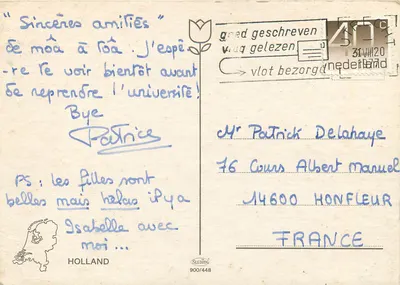 " Sincères amitiés "
de môâ à tôâ. J'espè
-re te voir bientôt avant
de reprendre l'université!
Bye
Patrice
PS: les filles sont
belles mais hélas il y a
Isabelle avec
moi...
HOLLAND
900/448
goed geschreven
vlug gelezen
vlot bezorgd
40c
nederland
Mr Patrick Delahaye
76 Cours Albert Manuel
14600 HONFLEUR
FRANCE